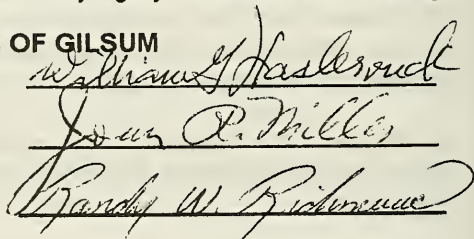 OF GILSUM
William G Hasbrouck
Joan R. Miller
Randy W. Richmond